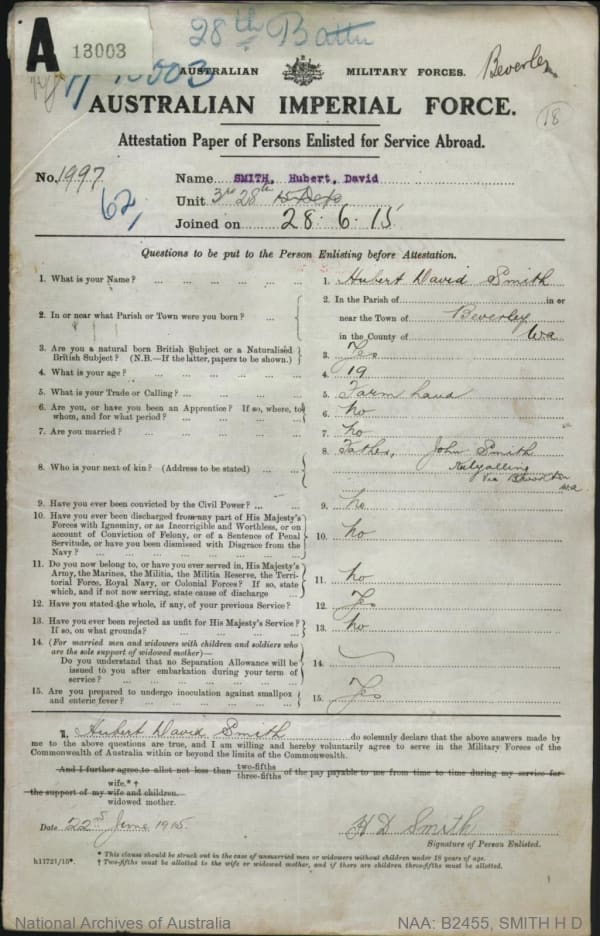 28th Battn
A 13003
13003
AUSTRALIAN MILITARY FORCES.
Beverley
AUSTRALIAN IMPERIAL FORCE.
18
Attestation Paper of Persons Enlisted for Service Abroad.
No. 1997 Name SMITH, Hubert, David
62, Unit 3rd 28th
Joined on 28.6.15
Questions to be put to the Person Enlisting before Attestation.
1. What is your Name? 1. Hubert David Smith
2. In or near what Parish or Town were you born? 2. In the Parish of in or
near the Town of Beverley
in the County of Wa
3. Are you a natural born British Subject or a Naturalised
British Subject? (N.B.—If the latter, papers to be shown.) 3. Yes
4. What is your age? 4. 19
5. What is your Trade or Calling? 5. Farm hand
6. Are you, or have you been an Apprentice? If so, where, to
whom, and for what period? 6. no
7. Are you married? 7. no
8. Who is your next of kin? (Address to be stated) 8. Father, John Smith
via
wa
9. Have you ever been convicted by the Civil Power? 9. no
10. Have you ever been discharged from any part of His Majesty's
Forces with Ignominy, or as Incorrigible and Worthless, or on
account of Conviction of Felony, or of a Sentence of Penal
Servitude, or have you been dismissed with Disgrace from the
Navy? 10. no
11. Do you now belong to, or have you ever served in, His Majesty's
Army, the Marines, the Militia, the Militia Reserve, the Terri-
torial Force, Royal Navy, or Colonial Forces? If so, state
which, and if not now serving, state cause of discharge 11. no
12. Have you stated the whole, if any, of your previous Service? 12. Yes
13. Have you ever been rejected as unfit for His Majesty's Service?
If so, on what grounds? 13. no
14. (For married men and widowers with children and soldiers who
are the sole support of widowed mother)—
Do you understand that no Separation Allowance will be
issued to you after embarkation during your term of
service? 14.
15. Are you prepared to undergo inoculation against smallpox
and enteric fever? 15. Yes
I, Hubert David Smith do solemnly declare that the above answers made by
me to the above questions are true, and I am willing and hereby voluntarily agree to serve in the Military Forces of the
Commonwealth of Australia within or beyond the limits of the Commonwealth.
And I further agree to allot not less than two-fifths
three-fifths of the pay payable to me from time to time during my service for
wife.*†
the support of my wife and children.
widowed mother.
Date 22nd June 1915. H D Smith
Signature of Person Enlisted.
* This clause should be struck out in the case of unmarried men or widowers without children under 18 years of age.
h11721/15*. † Two-fifths must be allotted to the wife or widowed mother, and if there are children three-fifths must be allotted.
National Archives of Australia NAA: B2455, SMITH H D